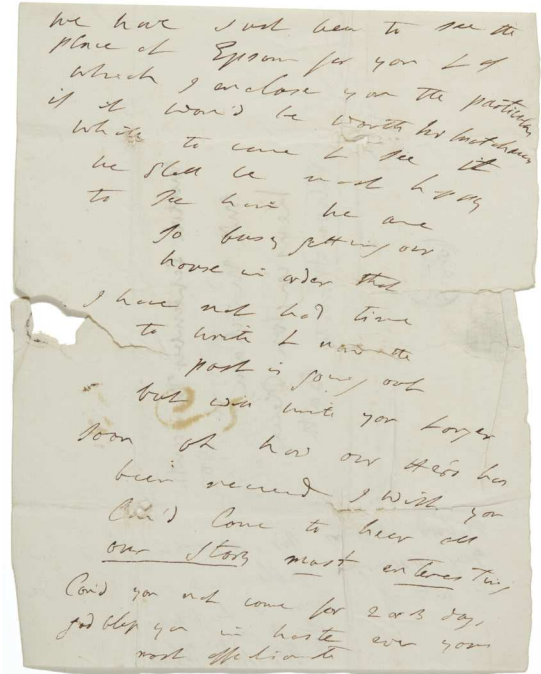 we have just been to see the
place at Epsom for you & of
which I enclose you the particulars
if it wou'd be worth Mr
while to come & see it
we shall be most happy
to see him we are
so busy getting our
house in order that
I have not had time
to write & now the
post is going out
but will write you longer
soon oh how our Hero has
been received I wish you
Cou'd Come to hear all
our Story most enteresting
Cou'd you not come for 2 or 3 days
god bless you in haste ever yours
most affectionate